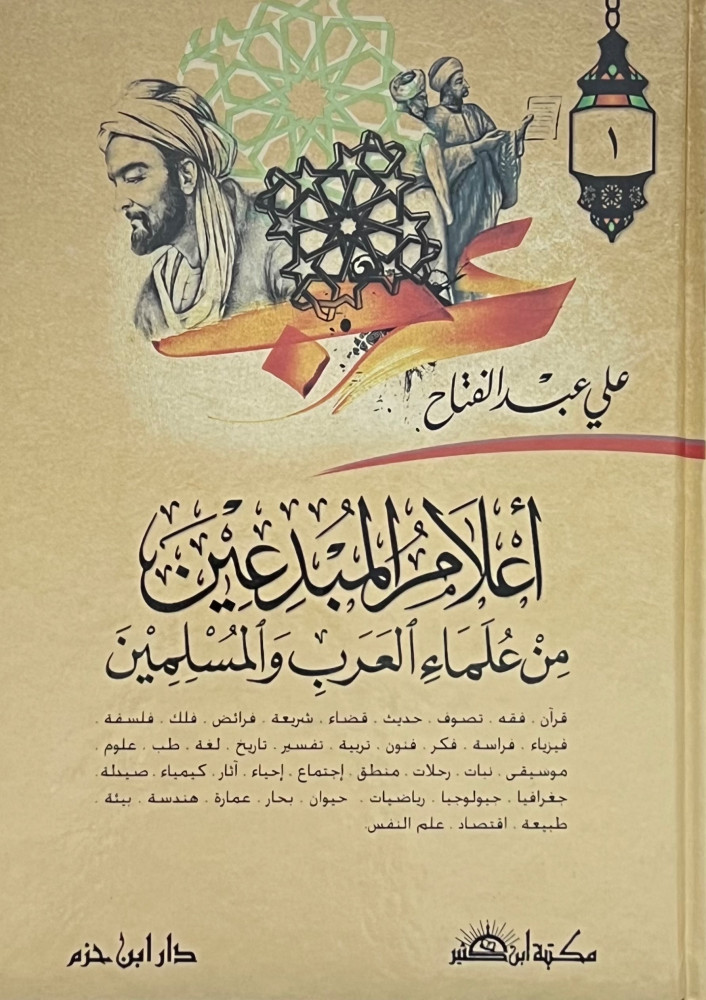 ١
علي عبد الفتاح
أعْلَامُ المُبْدِعِيْنَ
مِنْ عُلَمَاءِ العَرَبِ وَالمُسْلِمِيْنَ
قرآن . فقه . تصوف . حديث . قضاء . شريعة . فرائض . فلك . فلسفة .
فيزياء . فراسة . فكر . فنون . تربية . تفسير . تاريخ . لغة . طب . علوم .
موسيقى . نبات . رحلات . منطق . إجتماع . إحياء . آثار . كيمياء . صيدلة .
جغرافيا . جيولوجيا . رياضيات . حيوان . بحار . عمارة . هندسة . بيئة .
طبيعة . اقتصاد . علم النفس.
مكتبة ابن كثير
دار ابن حزم